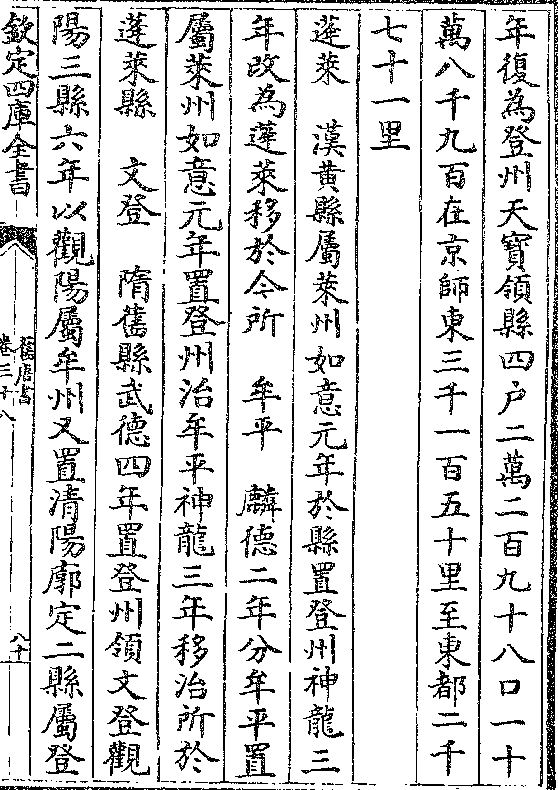 年復為登州天寶領縣四户二萬二百九十八口一十
萬八千九百在京師東三千一百五十里至東都二千
七十一里
蓬萊　漢黄縣屬萊州如意元年於縣置登州神龍三
年改為蓬萊移於今所　牟平　麟德二年分牟平置
屬萊州如意元年置登州治牟平神龍三年移治所於
蓬萊縣　文登　隋舊縣武德四年置登州領文登觀
陽三縣六年以觀陽屬牟州又置清陽廓定二縣屬登
欽定四庫全書
舊唐書
卷三十八
八十